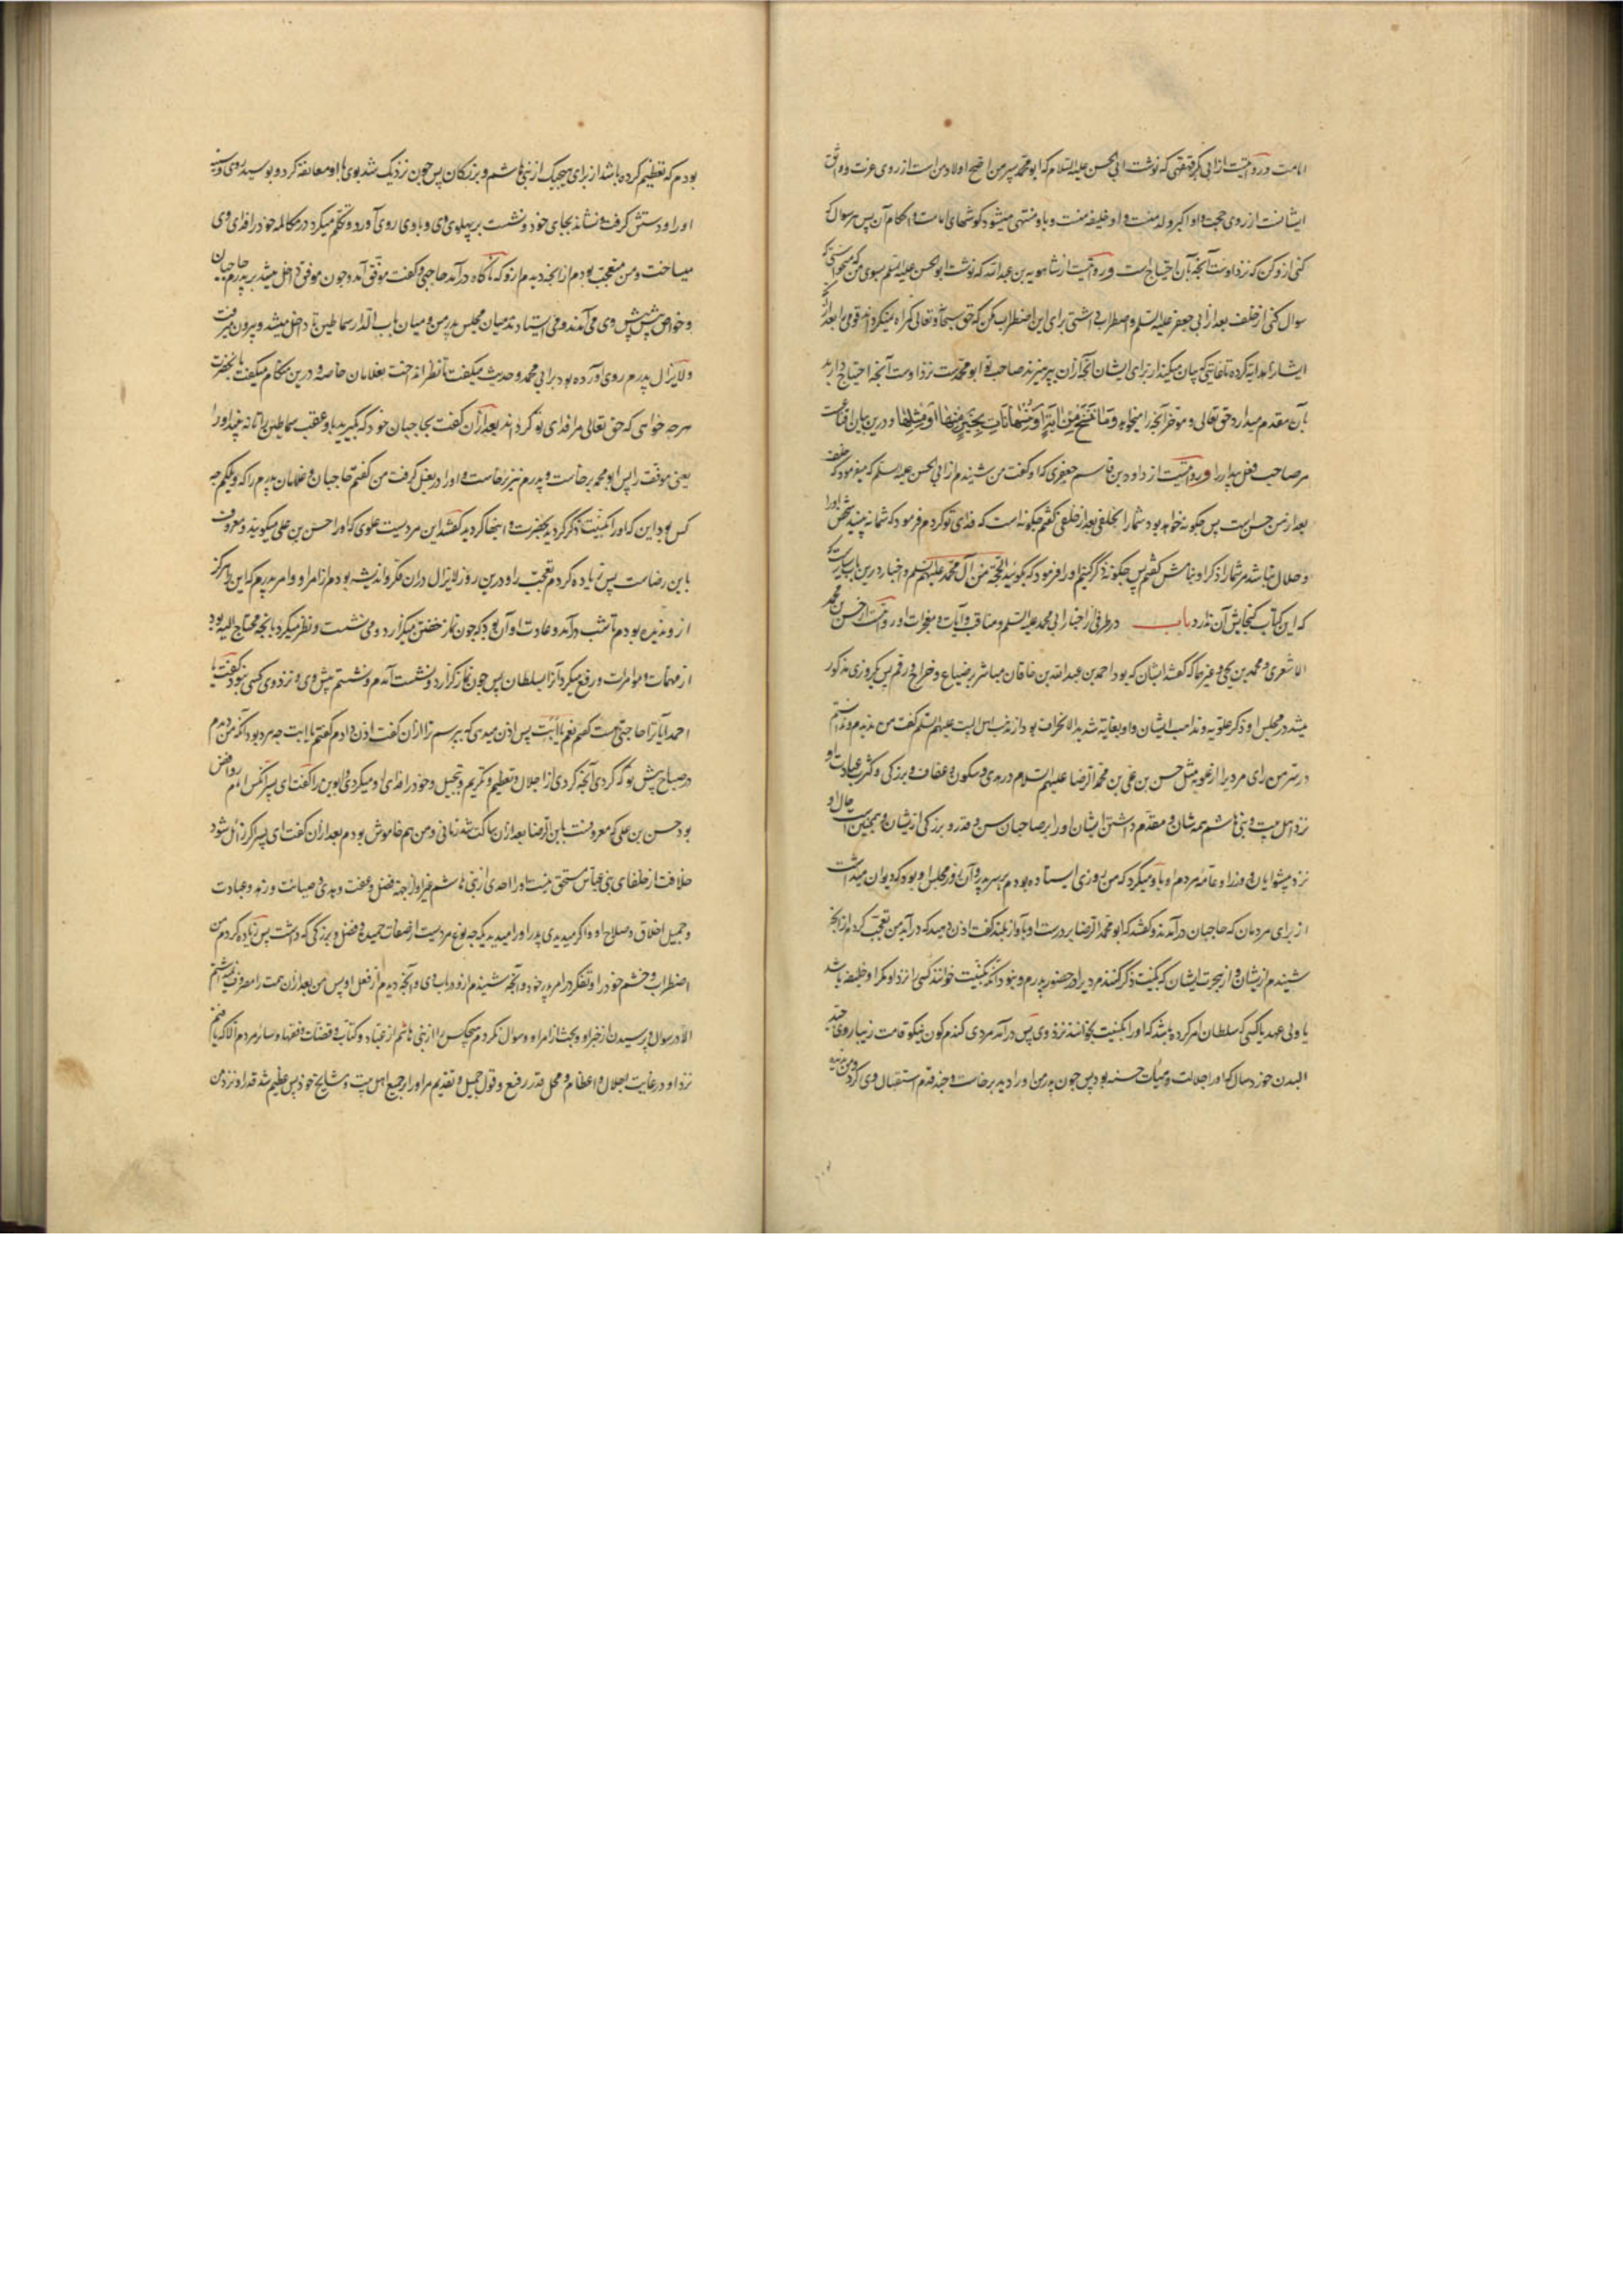 امامت و روایتست از ابی بکر فهفهی که نوشت ابی الحسن علیه السلام که ابو محمد پسر من اصح اولاد من است از روی عزت و اوثق
ایشانست از روی حجت و او اکبر ولد منست و او خلیفه منست و باو منتهی میشود کوشهای امامت و احکام آن پس هر سوال که
کنی ازو کن که نزد اوست آنچه بآن احتیاج است و روایتست از شاهویه بن عبدالله که نوشت ابو الحسن علیه السلم بسوی من که میخواستی که
سوال کنی از خلف بعد از ابی جعفر علیه السلم و اضطراب داشتی برای این اضطراب مکن که حق سبحانه و تعالی کمراه نمیکرداند قومی را بعد از آنکه
ایشانرا هدایت کرده تا غایتی که بیان میکند از برای ایشان آنچه ازان بپرهیزند صاحب تو ابو محمدست نزد اوست آنچه احتیاج دارید
بآن مقدم میدارد حق تعالی و موخر آنچه را میخواهد و ما ننسخ من آیة او ننسها نات بخیر منها او مثلها و درین بیان اقناعست
مر صاحب عقل بیدار را و روایتست از داود بن قاسم جعفری که او کفت من شنیدم از ابی الحسن علیه السلم که میفرمود که خلف
بعد از من حسن است پس چکونه خواهد بود شما را بخلفی بعد از خلفی کفتم چکونه است که فدای تو کردم فرمود که شما نه بینید شخص او را
و حلال نباشد مر شما را ذکر او بنامش کفتم پس چکونه ذکر کنیم او را فرمود که بکویید الحجة من آل محمد علیهم السلم و اخبار درین باب بسیارست
که این کتاب کنجایش آن ندارد باب در طرفی از اخبار ابی محمد علیه السلم و مناقب و آیات و معجزات او روایتست از حسن بن محمد
الاشعری و محمد بن یحیی و غیرهما که کفتند ایشان که بود احمد بن عبدالله بن خاقان مباشر بر ضیاع و خراج در قم پس یک روزی مذکور
میشد در مجلس او ذکر علویه و مذاهب ایشان و او بغایة شدید الانحراف بود از مذهب اهل البیت علیهم السلم کفت من ندیدم و ندانستم
در سر من رای مردیرا از علویه مثل حسن بن علی بن محمد الرضا علیهم السلام در هدی و سکون و عفاف و بزرکی و کثرت عبادت او
نزد اهل بیت و بنی هاشم همه شان و مقدم داشتن ایشان او را بر صاحبان سن و قدر و بزرکی ازیشان و همچنین است حال او
نزد پیشوایان و وزرا و عامه مردم و یاد میکرد که من روزی ایستاده بودم بر سر پدر و آن روز مجلس او بود که دیوان میداشت
از برای مردمان که حاجبان درآمدند و کفتند که ابو محمد الرضا بر درست او باواز بلند کفت اذن دهید که درآید من تعجب کردم ازانچه
شنیدم ازیشان و از جرءت ایشان که بکنیت ذکر کنند مردیرا در حضور پدرم و نبود آنکه بکنیت خوانند کسی را نزد او مکر او خلیفه باشد
یا ولی عهد یا کسی که سلطان امر کرده باشد که او را بکنیت بخوانند نزد وی پس درآمد مردی کندم کون نیکو قامت زیبا روی جید
البدن خورد سال که او را جلالت و هیات حسنه بود پس چون پدر من او را دید برخاست و چند قدم استقبال وی کرد و من ندیده
بودم که تعظیم کرده باشد از برای هیچیک از بنی هاشم و بزرکان پس چون نزدیک شد بوی با او معانقه کرد و بوسید روی و سینه
او را و دستش کرفت و نشاند بجای خود و نشست بر پهلوی وی و با وی روی آورد و تکلم میکرد در مکالمه خود را فدای وی
میساخت و من متعجب بودم از آنچه دیدم ازو که ناکاه درآمد حاجبی و کفت موفق آمد و چون موفق داخل میشد بر پدرم حاجبان
و خواص پیش پیش وی می آمدند و می ایستادند میان مجلس پدر من و میان باب الدار سماطین تا داخل میشد و بیرون میرفت
و لایزال پدرم روی آورده بود بر ابی محمد و حدیث میکفت تا نظر انداخت بغلامان خاصه و درین هنکام میکفت بانحضرت
هرچه خواهی که حق تعالی مرا فدای تو کرداند بعد ازآن کفت بحاجبان خود که بکیرید باو عقب سماطین را تا نه بیند او را
یعنی موفق را پس ابو محمد برخاست و پدرم نیز برخاست و او را در بغل کرفت من کفتم حاجبان و غلامان پدرم را که ویلکم چه
کس بود این که او را بکنیت ذکر کردید بحضرت و اینجا کردید کفتند این مردیست علوی که او را حسن بن علی میکویند و معروف
بابن رضاست پس زیاده کردم تعجب را و درین روز لایزال دران فکر و اندیشه بودم از امر او و امر پدرم که این را هرکز
ازو ندیده بودم تا شب درآمد و عادت او آن بود که چون نماز خفتن میکزارد و می نشست و نظر میکرد بانچه محتاج الیه بود
از مهمات و مؤامرات و رفع میکرد آنرا بسلطان پس چون نماز کزارد و نشست آمدم و نشستم پیش وی و نزد وی کسی نبود کفت یا
احمد آیا ترا حاجتی هست کفتم نعم یا ابت پس اذن میدهی که بپرسم ترا ازآن کفت اذن دادم کفتم یا ابت چه مرد بود آنکه من دیدم
در صباح پیش تو که کردی آنچه کردی از اجلال و تعظیم و تکریم و تبجیل و خود را فدای او میکردی و ابوین را کفت ای پسر آنکس امام روافض
بود حسن بن علی که معروفست بابن الرضا بعد ازان ساکت شد زمانی و من هم خاموش بودم بعد ازان کفت ای پسر اکر زائل شود
خلافت از خلفای بنی عباس مستحق نیست او را احدی از بنی هاشم غیر او از جهة فضل و عفت و هدی و صیانت و زهد و عبادت
و جمیل اخلاق و صلاح او و اکر میدیدی پدر او را میدیدی که چه نوع مردیست از صفات حمیده و فضل و بزرکی که داشت پس زیاده کردم من
اضطراب و خشم خود را و تفکر در امر پدر خود و آنچه شنیدم ازو در باب وی و آنچه دیدم از فعل او پس من بعد ازان همت را مصروف نداشتم
الا در سوال و پرسیدن از خبر او و بحث از امر او و سوال نکردم هیچکس را از بنی هاشم از عباد و کتاب و قضات و فقها و سایر مردم الا که یافتم
نزد او در غایت اجلال و اعظام و محل و قدر رفیع و قول جمیل و تقدیم مر او را بر جمیع اهل بیت و مشایخ خود پس عظیم شد قدر او نزد من